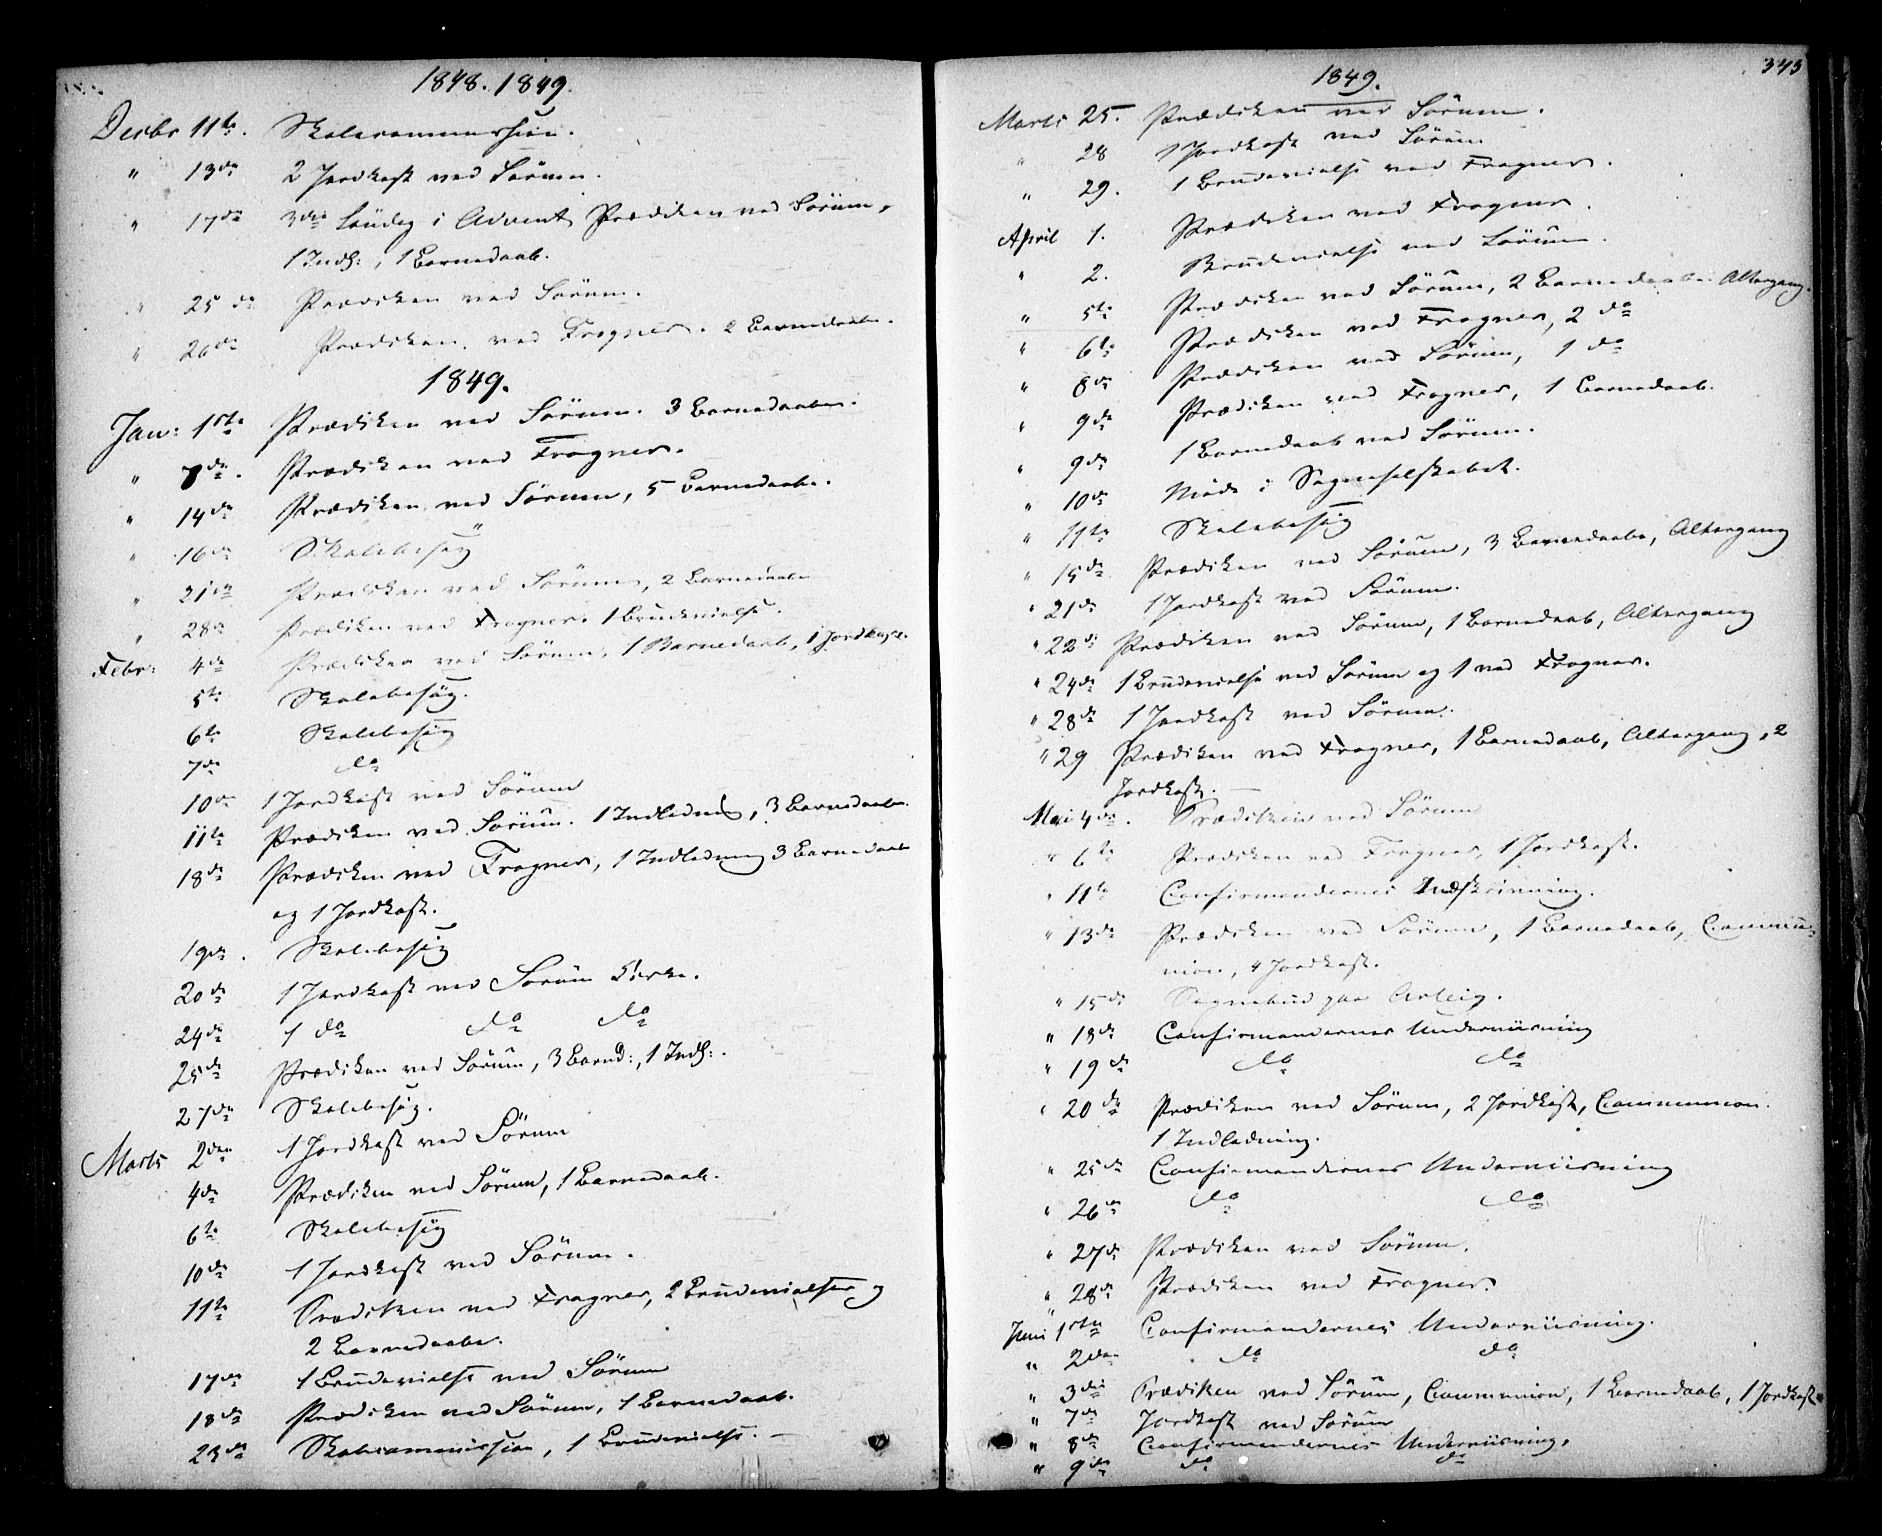 1848. 1849.
Decbr 11te. Skolecommission.
" 13de 2 Jordkast ved Sørum.
" 17de 3die Søndag i Advent Prædiken ved Sørum,
1 Indl:, 1 Barnedaab.
" 25de Prædiken ved Sørum.
" 26de Prædiken ved Frogner. 2 Barnedaabe.
1849.
Jan: 1ste Prædiken ved Sørum. 3 Barnedaabe.
" 7de. Prædiken ved Frogner.
" 14de Prædiken ved Sørum, 5 Barnedaabe.
" 16de Skolebesøg
" 21de Prædiken ved Sørum, 2 Barnedaabe
" 28de Prædiken ved Frogner. 1 Brudevielse.
Febr: 4de Prædiken ved Sørum, 1 Barnedaab, 1 Jordkast.
5te Skolebesøg.
6te Skolebesøg
7de do
10de 1 Jordkast ved Sørum
11te Prædiken ved Sørum. 1 Indledn, 3 Barnedaabe.
18de Prædiken ved Frogner, 1 Indledning 3 Barnedaab
og 1 Jordkast.
19de. Skolebesøg
20de 1 Jordkast ved Sørum Kirke.
24de 1 do do do
25de Prædiken ved Sørum, 3 Barnd:, 1 Indl:.
27de Skolebesøg.
Marts 2den 1 Jordkast ved Sørum
4de Prædiken ved Sørum, 1 Barnedaab.
6te Skolebesøg
10de 1 Jordkast ved Sørum.
11te Prædiken ved Frogner, 2 Brudevielser og
2 Barnedaabe.
17de 1 Brudevielse ved Sørum
18de Prædiken ved Sørum, 1 Barnedaab.
23de Skolecommission, 1 Brudevielse. —
1849.
343
Marts 25. Prædiken ved Sørum.
" 28 1 Jordkast ved Sørum
" 29. 1 Brudevielse ved Frogner.
April 1. Prædiken ved Frogner.
" 2. Brudevielse ved Sørum.
" 5te Prædiken ved Sørum, 2 Barnedaabe. Altergang.
" 6te Prædiken ved Frogner, 2 do
" 8de Prædiken ved Sørum, 1 do
" 9de Prædiken ved Frogner, 1 Barnedaab.
" 9de 1 Barnedaab ved Sørum.
" 10de Møde i Sogneselskabet.
" 11te Skolebesøg
" 15de Prædiken ved Sørum, 3 Barnedaabe, Altergang
" 21de 1 Jordkast ved Sørum.
" 22de Prædiken ved Sørum, 1 Barnedaab, Altergang
" 24de 1 Brudevielse ved Sørum og 1 ved Frogner.
" 28de 1 Jordkast ved Sørum.
" 29 Prædiken ved Frogner, 1 Barnedaab, Altergang, 2
Jordkast. —
Mai 4de. Prædiken ved Sørum
" 6te Prædiken ved Frogner, 1 Jordkast.
" 11te Confirmandernes Indskrivning.
" 13de Prædiken ved Sørum, 1 Barnedaab, Commu-
nion, 4 Jordkast.
" 15de Sognebud paa
" 18de Confirmandernes Underviisning
" 19de do do
" 20de Prædiken ved Sørum, 2 Jordkast, Communion.
1 Indledning.
" 25de Confirmandernes Underviisning
" 26de do do
" 27de Prædiken ved Sørum.
" 28de Prædiken ved Frogner.
Juni 1ste Confirmandernes Underviisning.
" 2den do do
" 3die Prædiken ved Sørum, Communion, 1 Barnedaab, 1 Jordkast.
" 7de Jordkast ved Sørum
" 8de Confirmandernes Underviisning.
" 9de do do